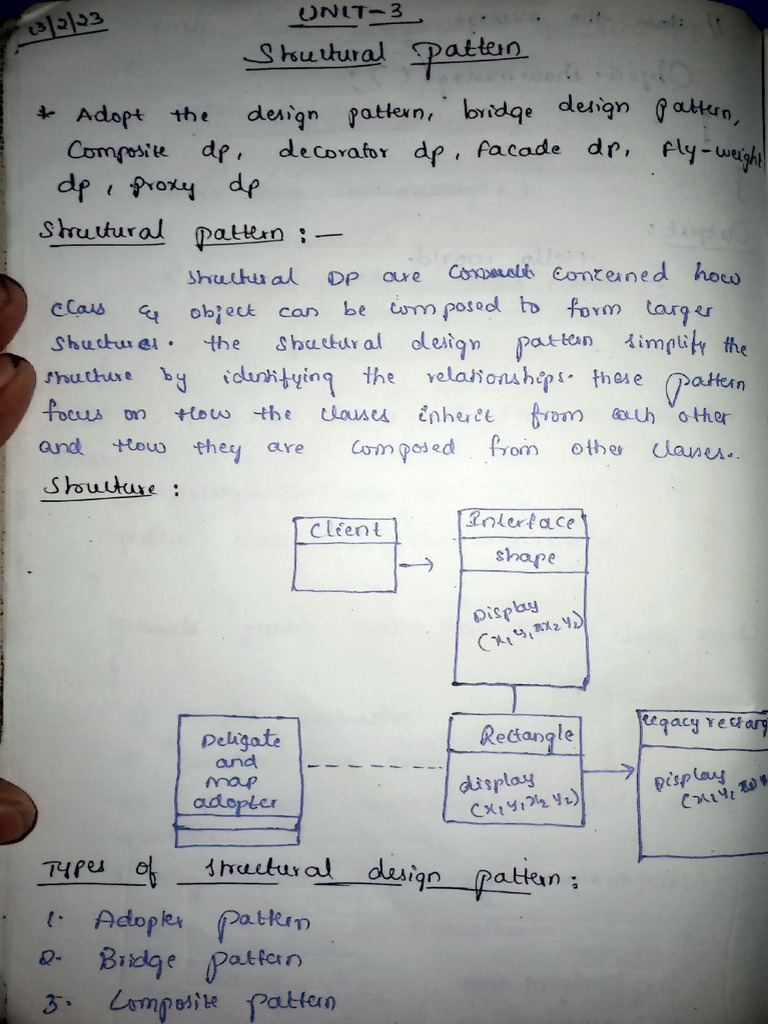 13/2/23
UNIT-3
Structural pattern
* Adopt the design pattern, bridge design pattern,
Composite dp, decorator dp, facade dp, fly-weight
dp, proxy dp
Structural pattern :-
Structural DP are concerned how
class & object can be composed to form larger
structures. the structural design pattern simplify the
structure by identifying the relationships. these pattern
focus on How the classes inherit from each other
and How they are composed from other classes..
Structure :
Client
Interface
shape
Display
(x1 y1 x2 y2)
Deligate
and
map
adopter
Rectangle
display
(x1 y1 x2 y2)
legacy rectang
Display
(x1 y1
Types of structural design pattern:
1. Adopter pattern
2. Bridge pattern
3. Composite pattern